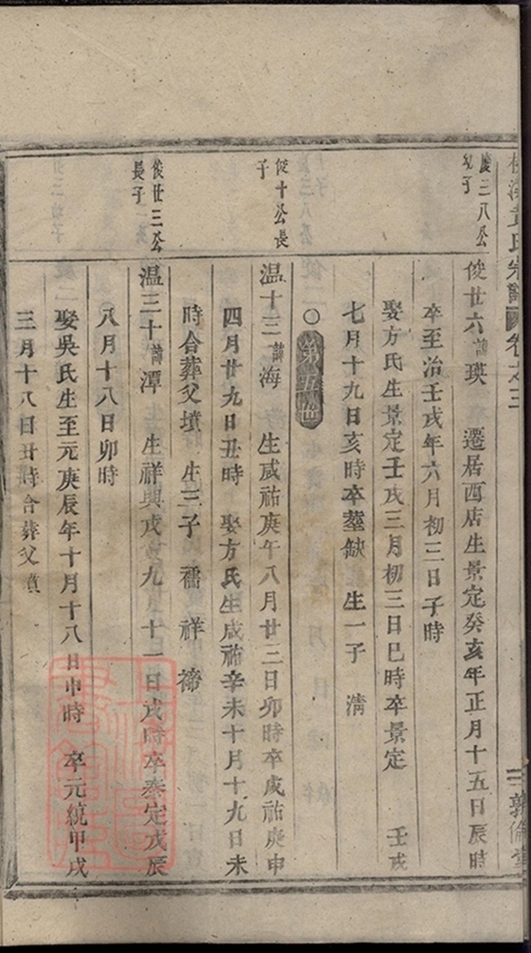 黃氏宗譜 卷之三
慶三八公
幼子
俊廿六諱瑛 遷居西店生景定癸亥年正月十五日辰時
卒至治壬戌年六月初三日子時
娶方氏生景定壬戌三月初三日巳時卒景定 壬戌
七月十九日亥時卒塟缺 生一子 淸
○第五世
俊十公長
子
温十三諱海 生咸祐庚午八月廿三日卯時卒咸祐庚申
四月廿九日丑時 娶方氏生咸祐辛未十月十九日未
時合葬父墳 生三子 襦 祥 褅
俊廿三公
長子
温三十諱潭 生祥興戊寅九月十一日戌時卒泰定戊辰
八月十八日卯時
娶吳氏生至元庚辰年十月十八日申時 卒元統甲戌
三月十八日丑時合葬父墳
敦倫堂